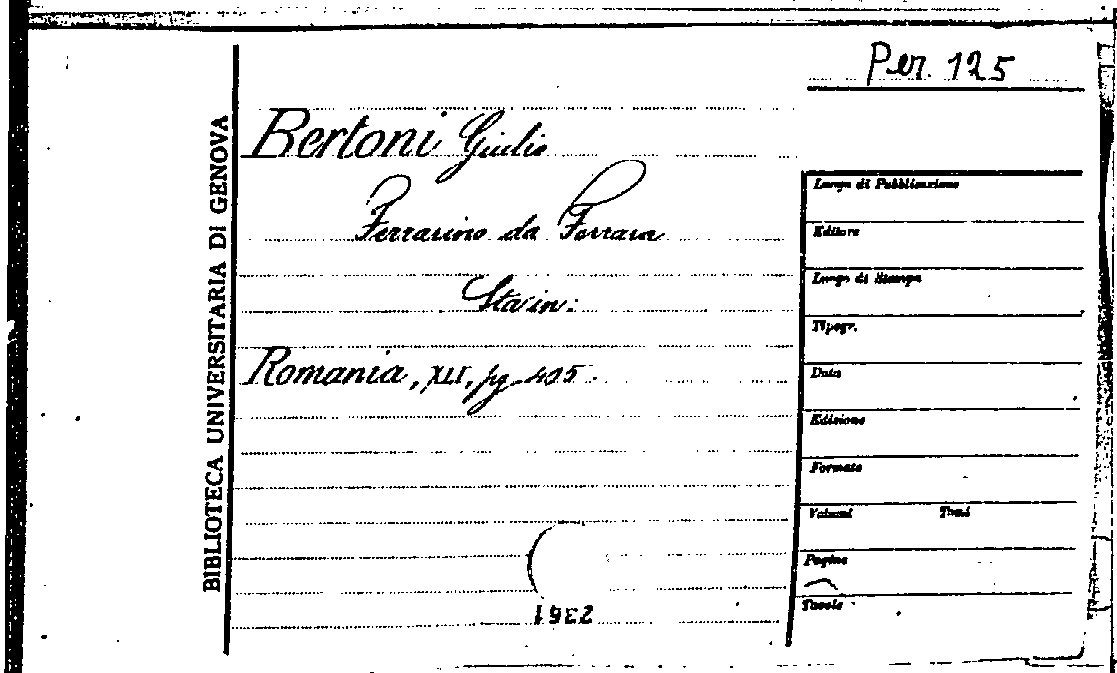 Per. 125
BIBLIOTECA UNIVERSITARIA DI GENOVA
Bertoni Giulio
Ferrarino da Ferrara
Sta in:
Romania, XLI, pg. 405
Luogo di Pubblicazione
Editore
Luogo di Stampa
Tipogr.
Data
Edizione
Formato
Volumi Tomi
Pagine
Tavole
2361